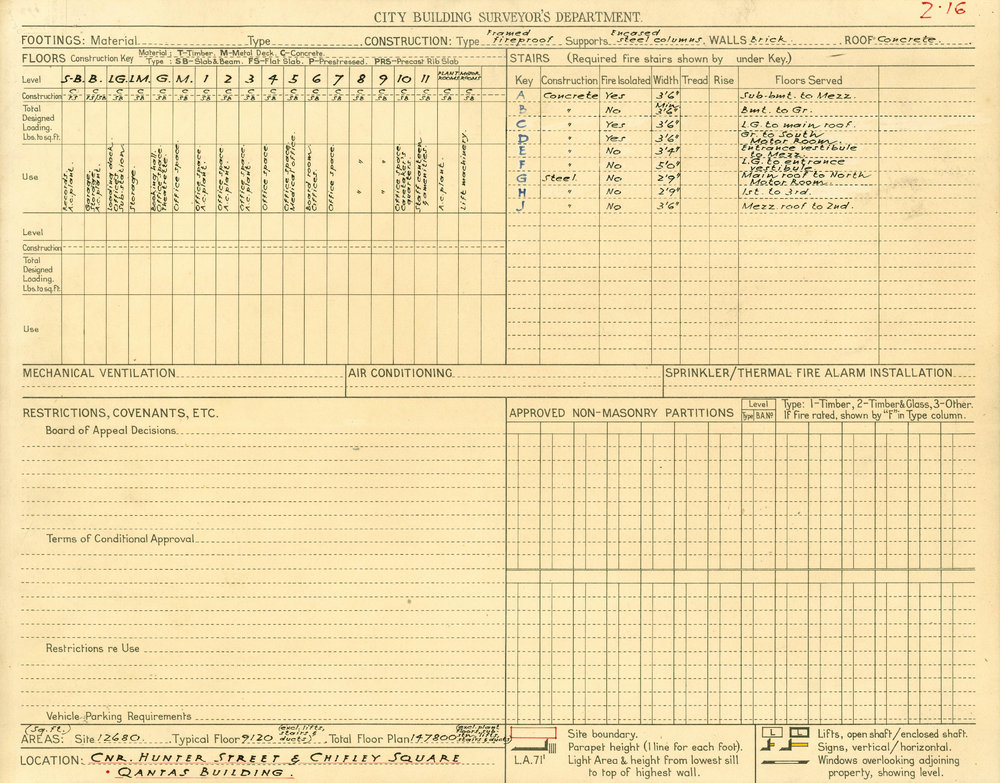 2·16
CITY BUILDING SURVEYOR'S DEPARTMENT.
FOOTINGS: Material Type CONSTRUCTION: Type Framed fireproof Supports Encased steel columns. WALLS Brick. ROOF Concrete.
FLOORS Construction Key Material: T-Timber, M-Metal Deck, C-Concrete.
Type: SB-Slab&Beam. FS-Flat Slab. P-Prestressed. PRS-Precast Rib Slab
Level S-B. B. LG. LM. G. M. 1 2 3 4 5 6 7 8 9 10 11 PLANT ROOMS MOTOR ROOMS
Construction C FS C FS/SB C SB C SB C SB C SB C SB C SB C SB C SB C SB C SB C SB C SB C SB C SB C SB C SB C SB
Total Designed Loading. Lbs. to sq. ft.
Use
Records. A.c. plant.
Garage. Storage. A.c. plant.
Loading dock. Offices. Sub-station.
Storage.
Booking hall. Office space. Theatrette.
Office space.
Office space. A.c. plant.
Office space. A.c. plant.
Office space. A.c. plant.
Office space.
Office space. Medical office.
Board room. Offices.
Office space.
"
"
Office space. Caretaker's quarters.
Staff canteen & amenities.
A.c. plant.
Lift machinery.
Level
Construction
Total
Designed
Loading.
Lbs. to sq. ft.
Use
STAIRS (Required fire stairs shown by under Key.)
Key Construction Fire Isolated Width Tread Rise Floors Served
A Concrete Yes 3'6" Sub-bmt. to Mezz.
B " No Min. 3'6" Bmt. to Gr.
C " Yes 3'6" L.G. to main roof.
D " Yes 3'6" Gr. to South Motor Room.
E " No 3'4" Entrance vestibule to Mezz.
F " No 5'0" L.G. to entrance vestibule.
G Steel. No 2'9" Main roof to North Motor Room.
H " No 2'9" 1st. to 3rd.
J " No 3'6" Mezz. roof to 2nd.
MECHANICAL VENTILATION
AIR CONDITIONING
SPRINKLER/THERMAL FIRE ALARM INSTALLATION
RESTRICTIONS, COVENANTS, ETC.
Board of Appeal Decisions
Terms of Conditional Approval
Restrictions re Use
Vehicle Parking Requirements
APPROVED NON-MASONRY PARTITIONS Level Type B.A.Nº Type: 1-Timber, 2-Timber&Glass, 3-Other.
If fire rated, shown by "F" in Type column.
AREAS: (Sq. ft.) Site 12680 Typical Floor 9120 (excl. lifts, stairs & ducts) Total Floor Plan 147800
LOCATION: CNR. HUNTER STREET & CHIFLEY SQUARE
• QANTAS BUILDING.
Site boundary.
Parapet height (1 line for each foot).
L.A.71' Light Area & height from lowest sill
to top of highest wall.
L Lifts, open shaft/enclosed shaft.
Signs, vertical/horizontal.
Windows overlooking adjoining
property, showing level.